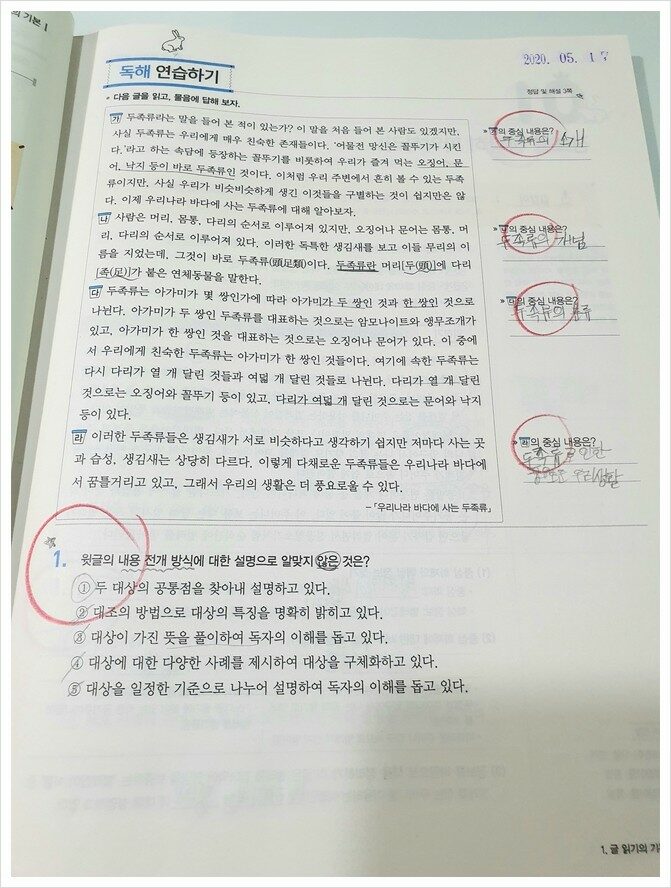 의 기본 I
독해 연습하기
2020. 05. 17
정답 및 해설 3쪽
* 다음 글을 읽고, 물음에 답해 보자.
가 두족류라는 말을 들어 본 적이 있는가? 이 말을 처음 들어 본 사람도 있겠지만,
사실 두족류는 우리에게 매우 친숙한 존재들이다. ‘어물전 망신은 꼴뚜기가 시킨
다.’라고 하는 속담에 등장하는 꼴뚜기를 비롯하여 우리가 즐겨 먹는 오징어, 문
어, 낙지 등이 바로 두족류인 것이다. 이처럼 우리 주변에서 흔히 볼 수 있는 두족
류이지만, 사실 우리가 비슷비슷하게 생긴 이것들을 구별하는 것이 쉽지만은 않
다. 이제 우리나라 바다에 사는 두족류에 대해 알아보자.
» 가의 중심 내용은?
두족류의 소개
나 사람은 머리, 몸통, 다리의 순서로 이루어져 있지만, 오징어나 문어는 몸통, 머
리, 다리의 순서로 이루어져 있다. 이러한 독특한 생김새를 보고 이들 무리의 이
름을 지었는데, 그것이 바로 두족류(頭足類)이다. 두족류란 머리[두(頭)]에 다리
[족(足)]가 붙은 연체동물을 말한다.
» 나의 중심 내용은?
두족류의 개념
다 두족류는 아가미가 몇 쌍인가에 따라 아가미가 두 쌍인 것과 한 쌍인 것으로
나뉜다. 아가미가 두 쌍인 두족류를 대표하는 것으로는 암모나이트와 앵무조개가
있고, 아가미가 한 쌍인 것을 대표하는 것으로는 오징어나 문어가 있다. 이 중에
서 우리에게 친숙한 두족류는 아가미가 한 쌍인 것들이다. 여기에 속한 두족류는
다시 다리가 열 개 달린 것들과 여덟 개 달린 것들로 나뉜다. 다리가 열 개 달린
것으로는 오징어와 꼴뚜기 등이 있고, 다리가 여덟 개 달린 것으로는 문어와 낙지
등이 있다.
» 다의 중심 내용은?
두족류의 분류
라 이러한 두족류들은 생김새가 서로 비슷하다고 생각하기 쉽지만 저마다 사는 곳
과 습성, 생김새는 상당히 다르다. 이렇게 다채로운 두족류들은 우리나라 바다에
서 꿈틀거리고 있고, 그래서 우리의 생활은 더 풍요로울 수 있다.
-「우리나라 바다에 사는 두족류」
» 라의 중심 내용은?
두족류로 인한
풍요로운 우리생활
1. 윗글의 내용 전개 방식에 대한 설명으로 알맞지 않은 것은?
① 두 대상의 공통점을 찾아내 설명하고 있다.
② 대조의 방법으로 대상의 특징을 명확히 밝히고 있다.
③ 대상이 가진 뜻을 풀이하여 독자의 이해를 돕고 있다.
④ 대상에 대한 다양한 사례를 제시하여 대상을 구체화하고 있다.
⑤ 대상을 일정한 기준으로 나누어 설명하여 독자의 이해를 돕고 있다.
1. 글 읽기의 기